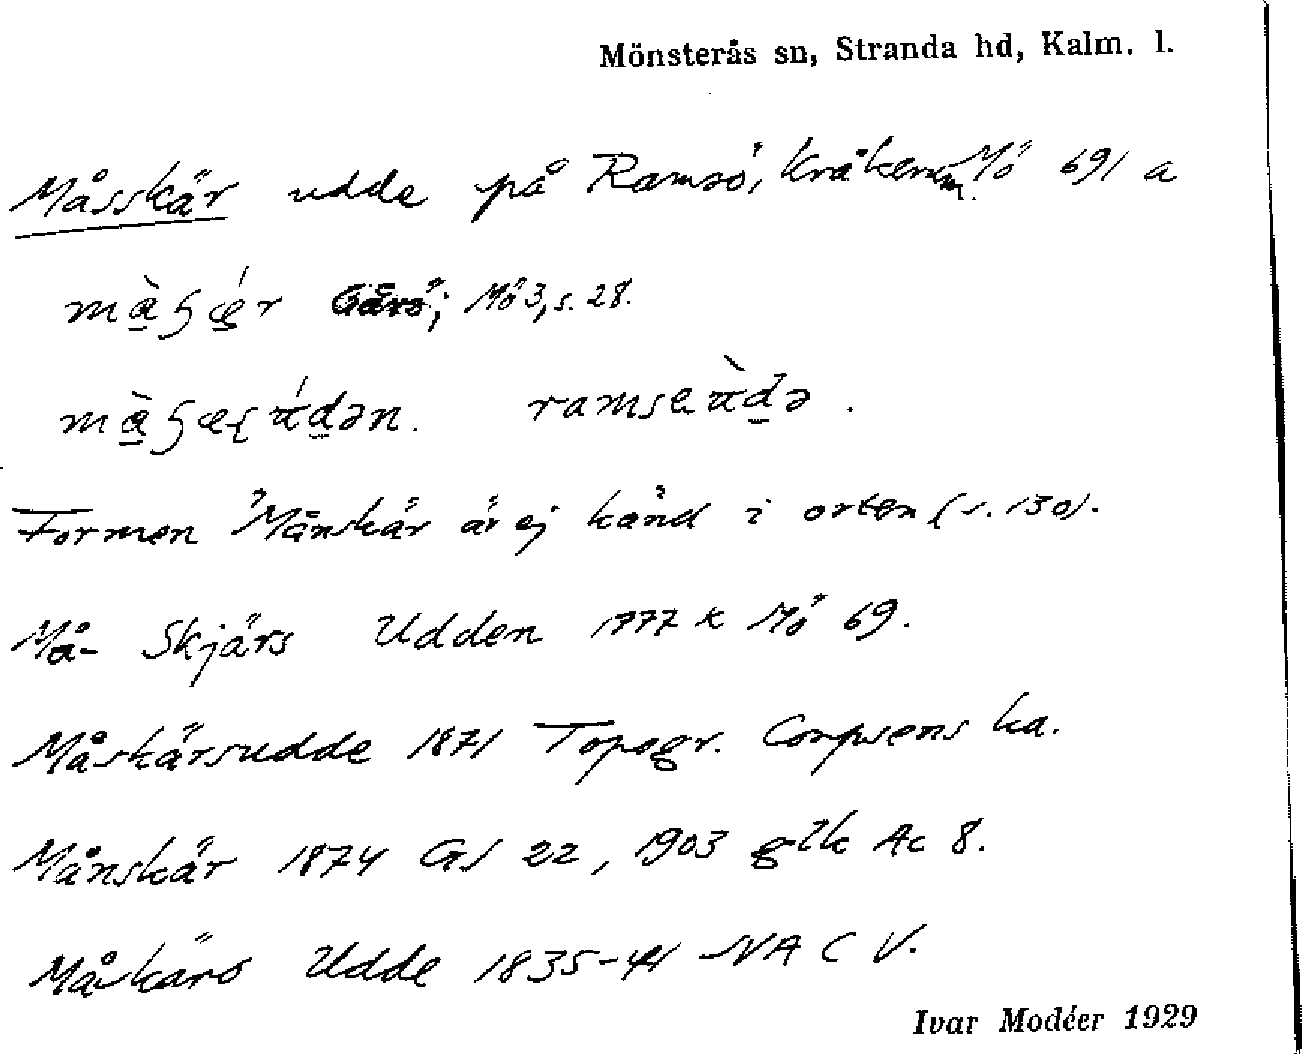 Mönsterås sn, Stranda hd, Kalm. l.
Måsskär udde på Ramsö, Kråkerum. Mö 691 a
Gårö; Mö 3, s. 28.
Formen "Månskär är ej känd i orten (s. 130).
Må- Skjärs Udden 1777 k Mö 69.
Måskärsudde 1871 Topogr. Corpsens ka.
Månskär 1874 GS 22, 1903 glk Ac 8.
Måskärs Udde 1835-44 NA C V.
Ivar Modéer 1929